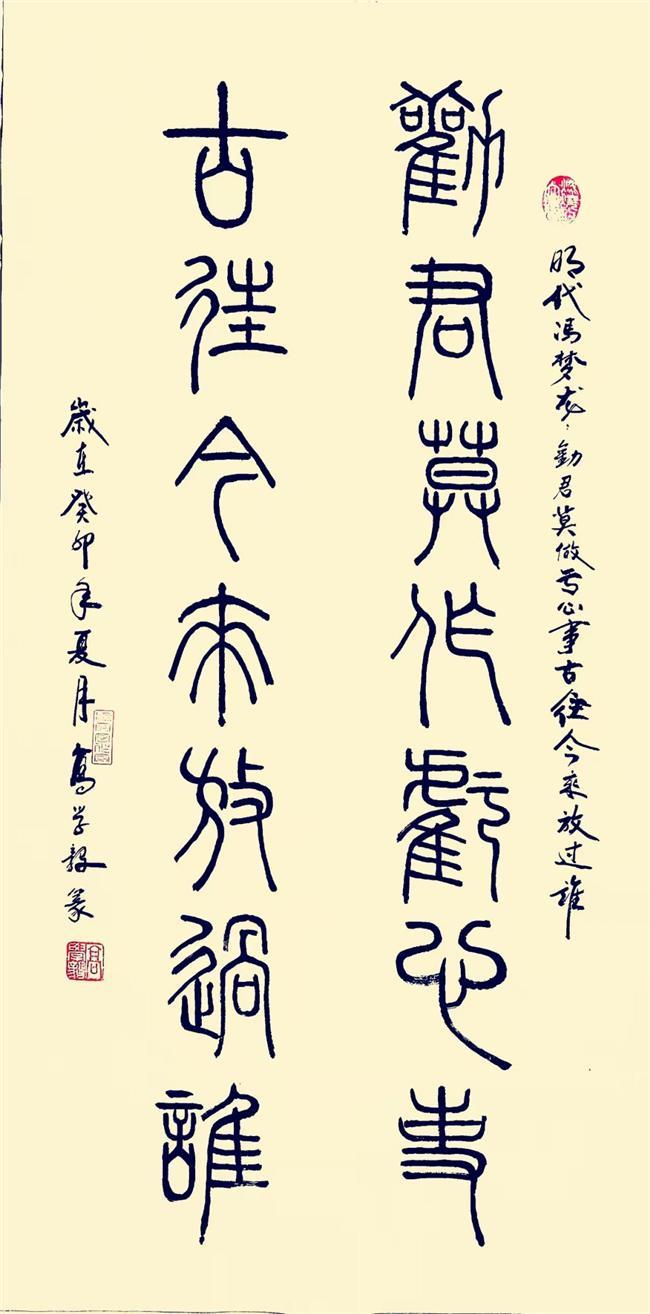 明代冯梦龙：劝君莫做亏心事古往今来放过谁
勸君莫作虧心事
古往今來放過誰
歲在癸卯年夏月高学毅篆
高學毅